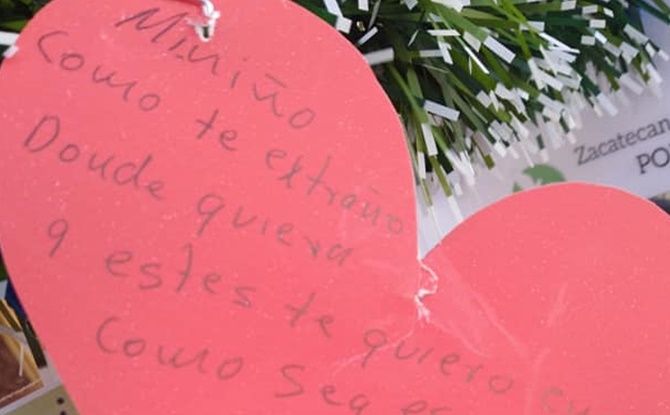 Mi niño
como te extraño
Donde quiera
q estes te quiero en
como sea
Zacatecan
PO